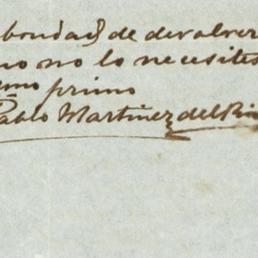 bondad de devolver
no no lo necesites
mo primo
Pablo Martinez del Rio